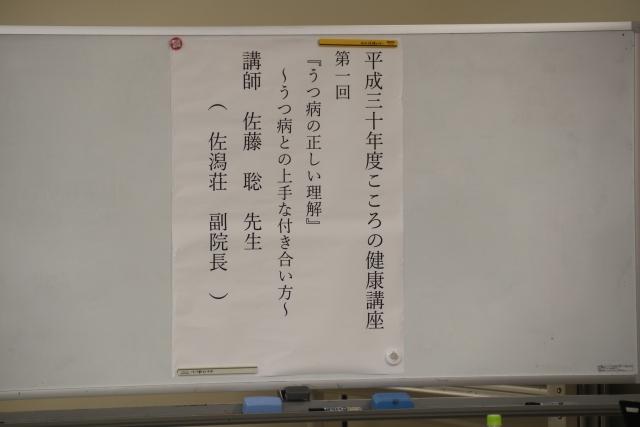 平成三十年度こころの健康講座
第一回
『うつ病の正しい理解』
～うつ病との上手な付き合い方～
講師 佐藤 聡 先生
（ 佐潟荘 副院長 ）